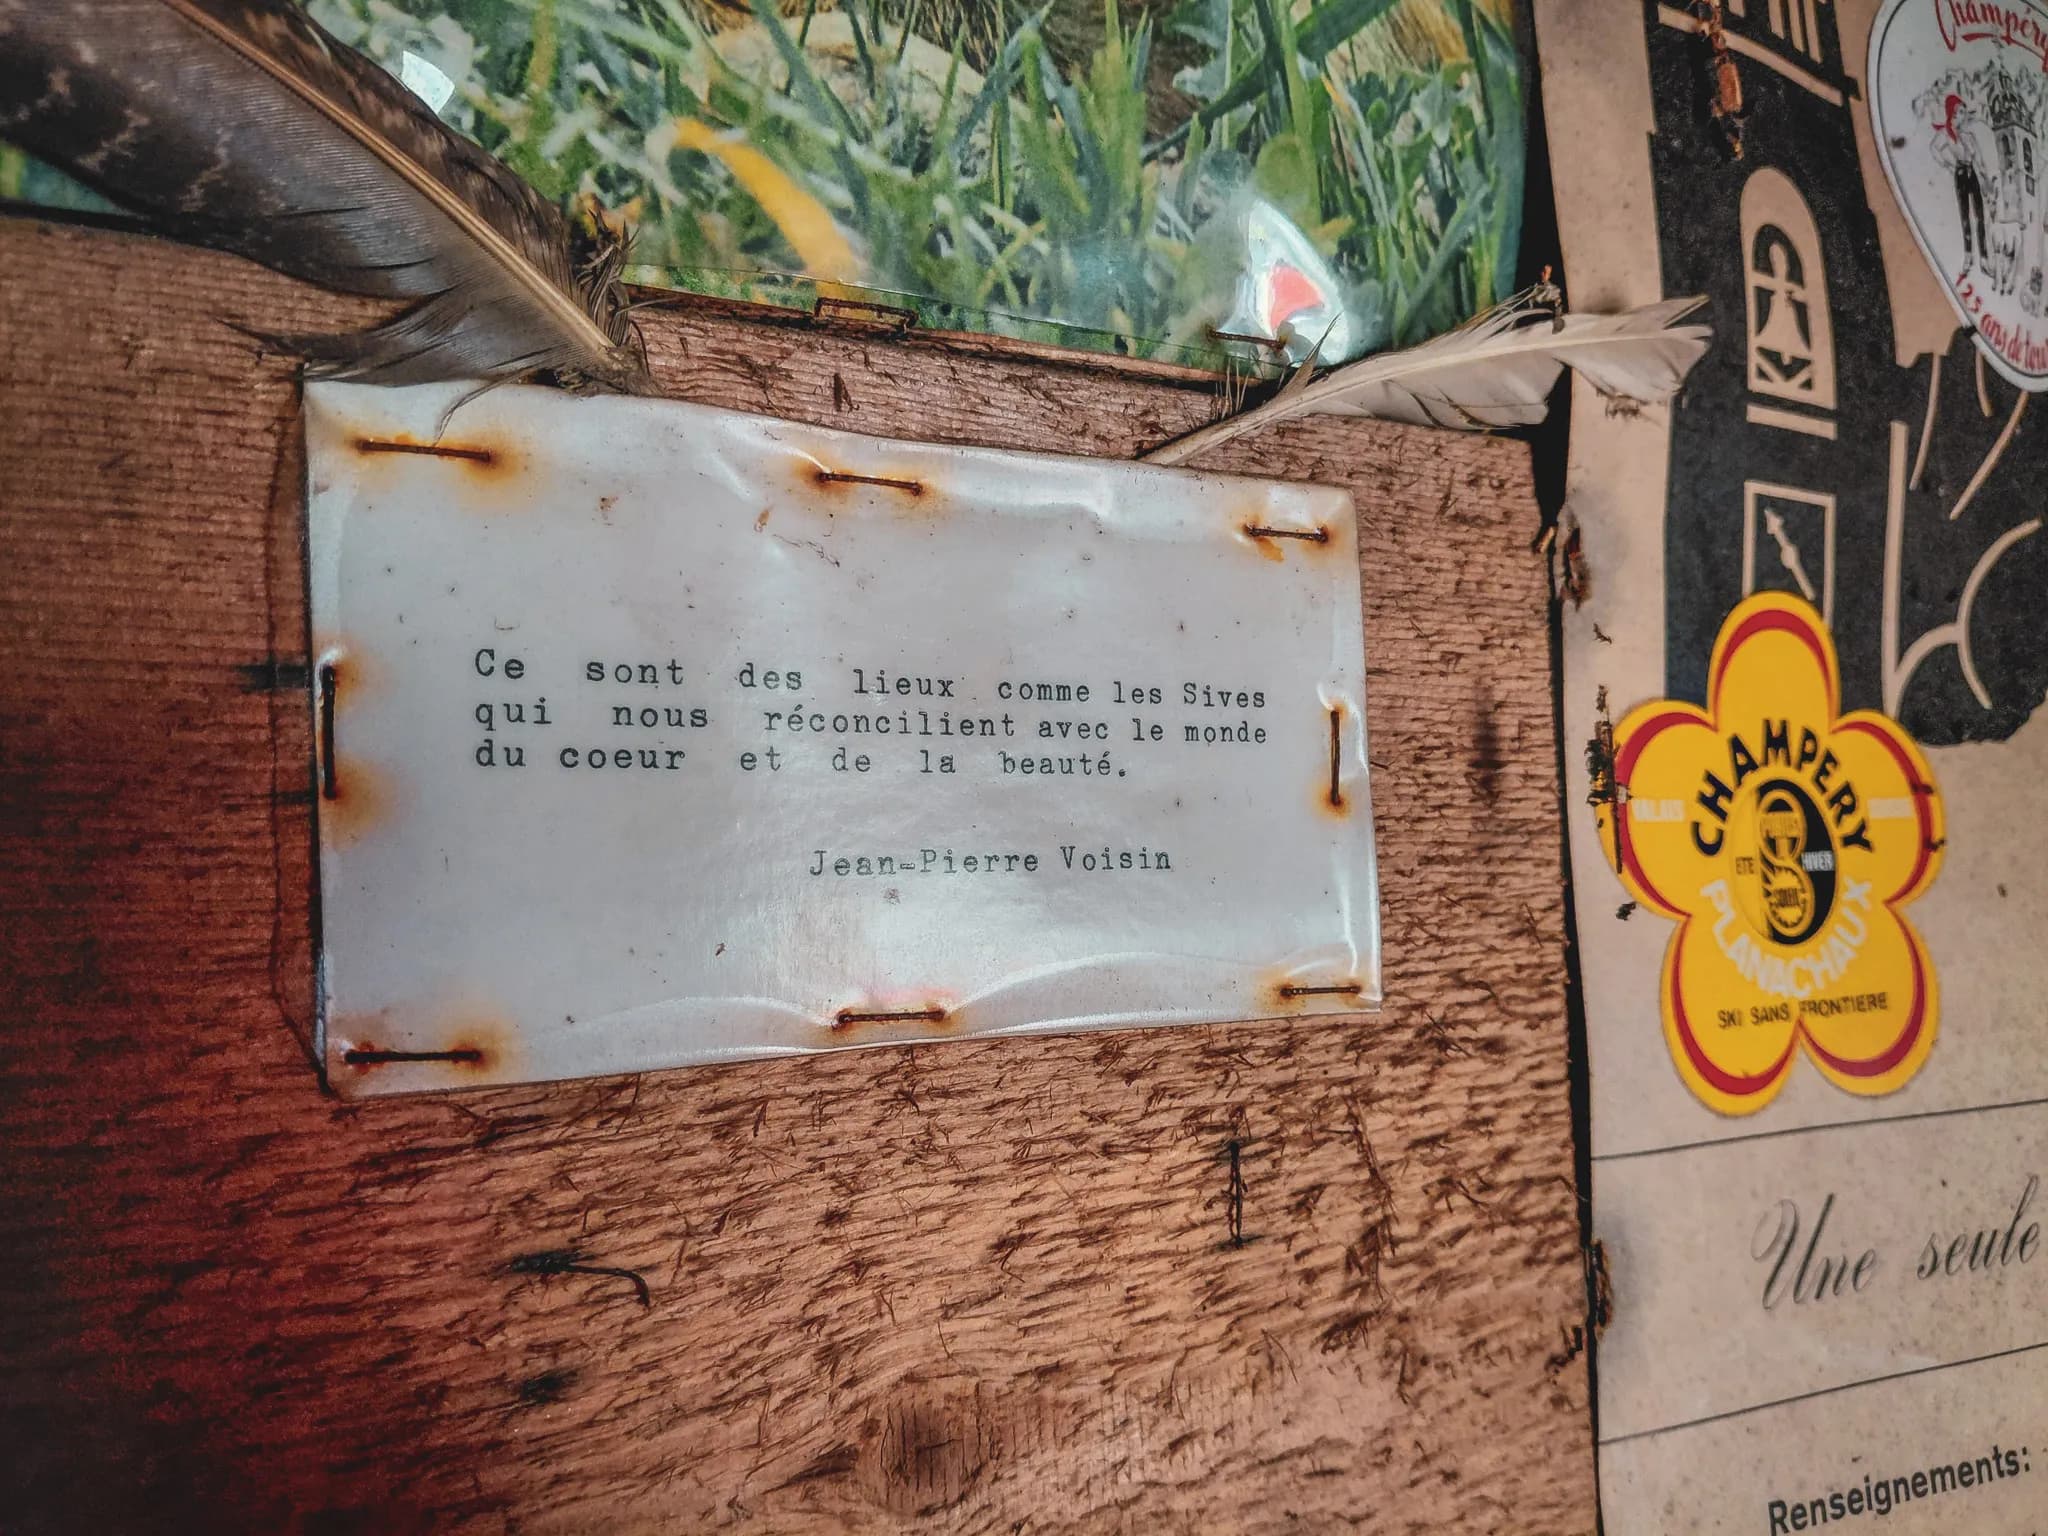 Ce sont des lieux comme les Sives
qui nous réconcilient avec le monde
du coeur et de la beauté.
Jean-Pierre Voisin
Champéry
125 ans de
CHAMPERY
VALAIS
SUISSE
ETE
HIVER
SOLEIL
PLANACHAUX
SKI SANS FRONTIERE
Une seule
Renseignements: